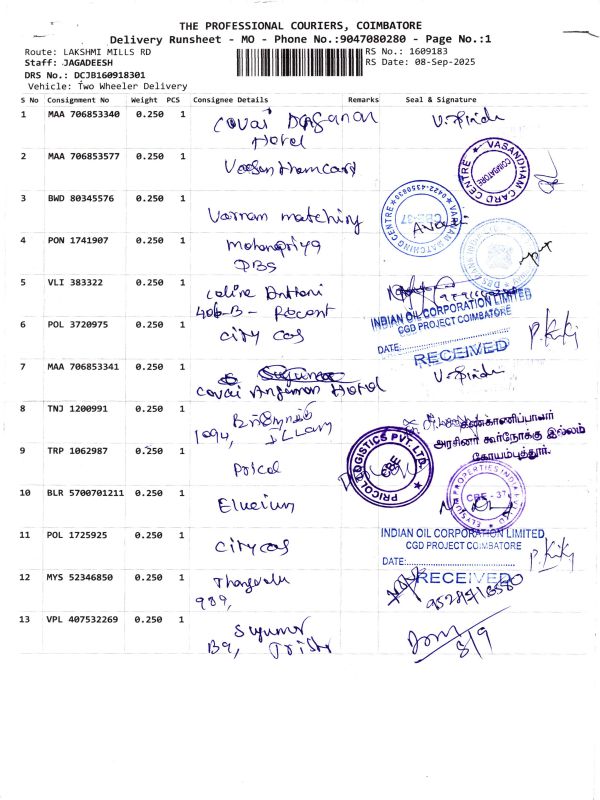 THE PROFESSIONAL COURIERS, COIMBATORE
Delivery Runsheet - MO - Phone No.:9047080280 - Page No.:1
Route: LAKSHMI MILLS RD
RS No.: 1609183
Staff: JAGADEESH
RS Date: 08-Sep-2025
DRS No.: DCJB160918301
Vehicle: Two Wheeler Delivery
S No Consignment No Weight PCS Consignee Details Remarks Seal & Signature
1 MAA 706853340 0.250 1 Covai
Hotel
2 MAA 706853577 0.250 1 Vasanthamcard
VASANDHAM CARD CENTRE
COIMBATORE
3 BWD 80345576 0.250 1 Varnam matching
VARNAM MATCHING CENTRE
CBE-37
4 PON 1741907 0.250 1 Mohanapriya
DBS
5 VLI 383322 0.250 1 Celine Anttoni
406-B -
6 POL 3720975 0.250 1 City Gas
INDIAN OIL CORPORATION LIMITED
CGD PROJECT COIMBATORE
DATE:
RECEIVED
7 MAA 706853341 0.250 1
Covai Hotel
8 TNJ 1200991 0.250 1
1094,
கண்காணிப்பாளர்
அரசினர் கூர்நோக்கு இல்லம்
கோயம்புத்தூர்.
9 TRP 1062987 0.250 1 Pricol
PRICOL LOGISTICS PVT. LTD.
CBE
10 BLR 5700701211 0.250 1
CBE - 37
11 POL 1725925 0.250 1 City Gas
INDIAN OIL CORPORATION LIMITED
CGD PROJECT COIMBATORE
DATE:
RECEIVED
12 MYS 52346850 0.250 1 Thangavelu
989,
13 VPL 407532269 0.250 1 Sugumar
B9,
8/9